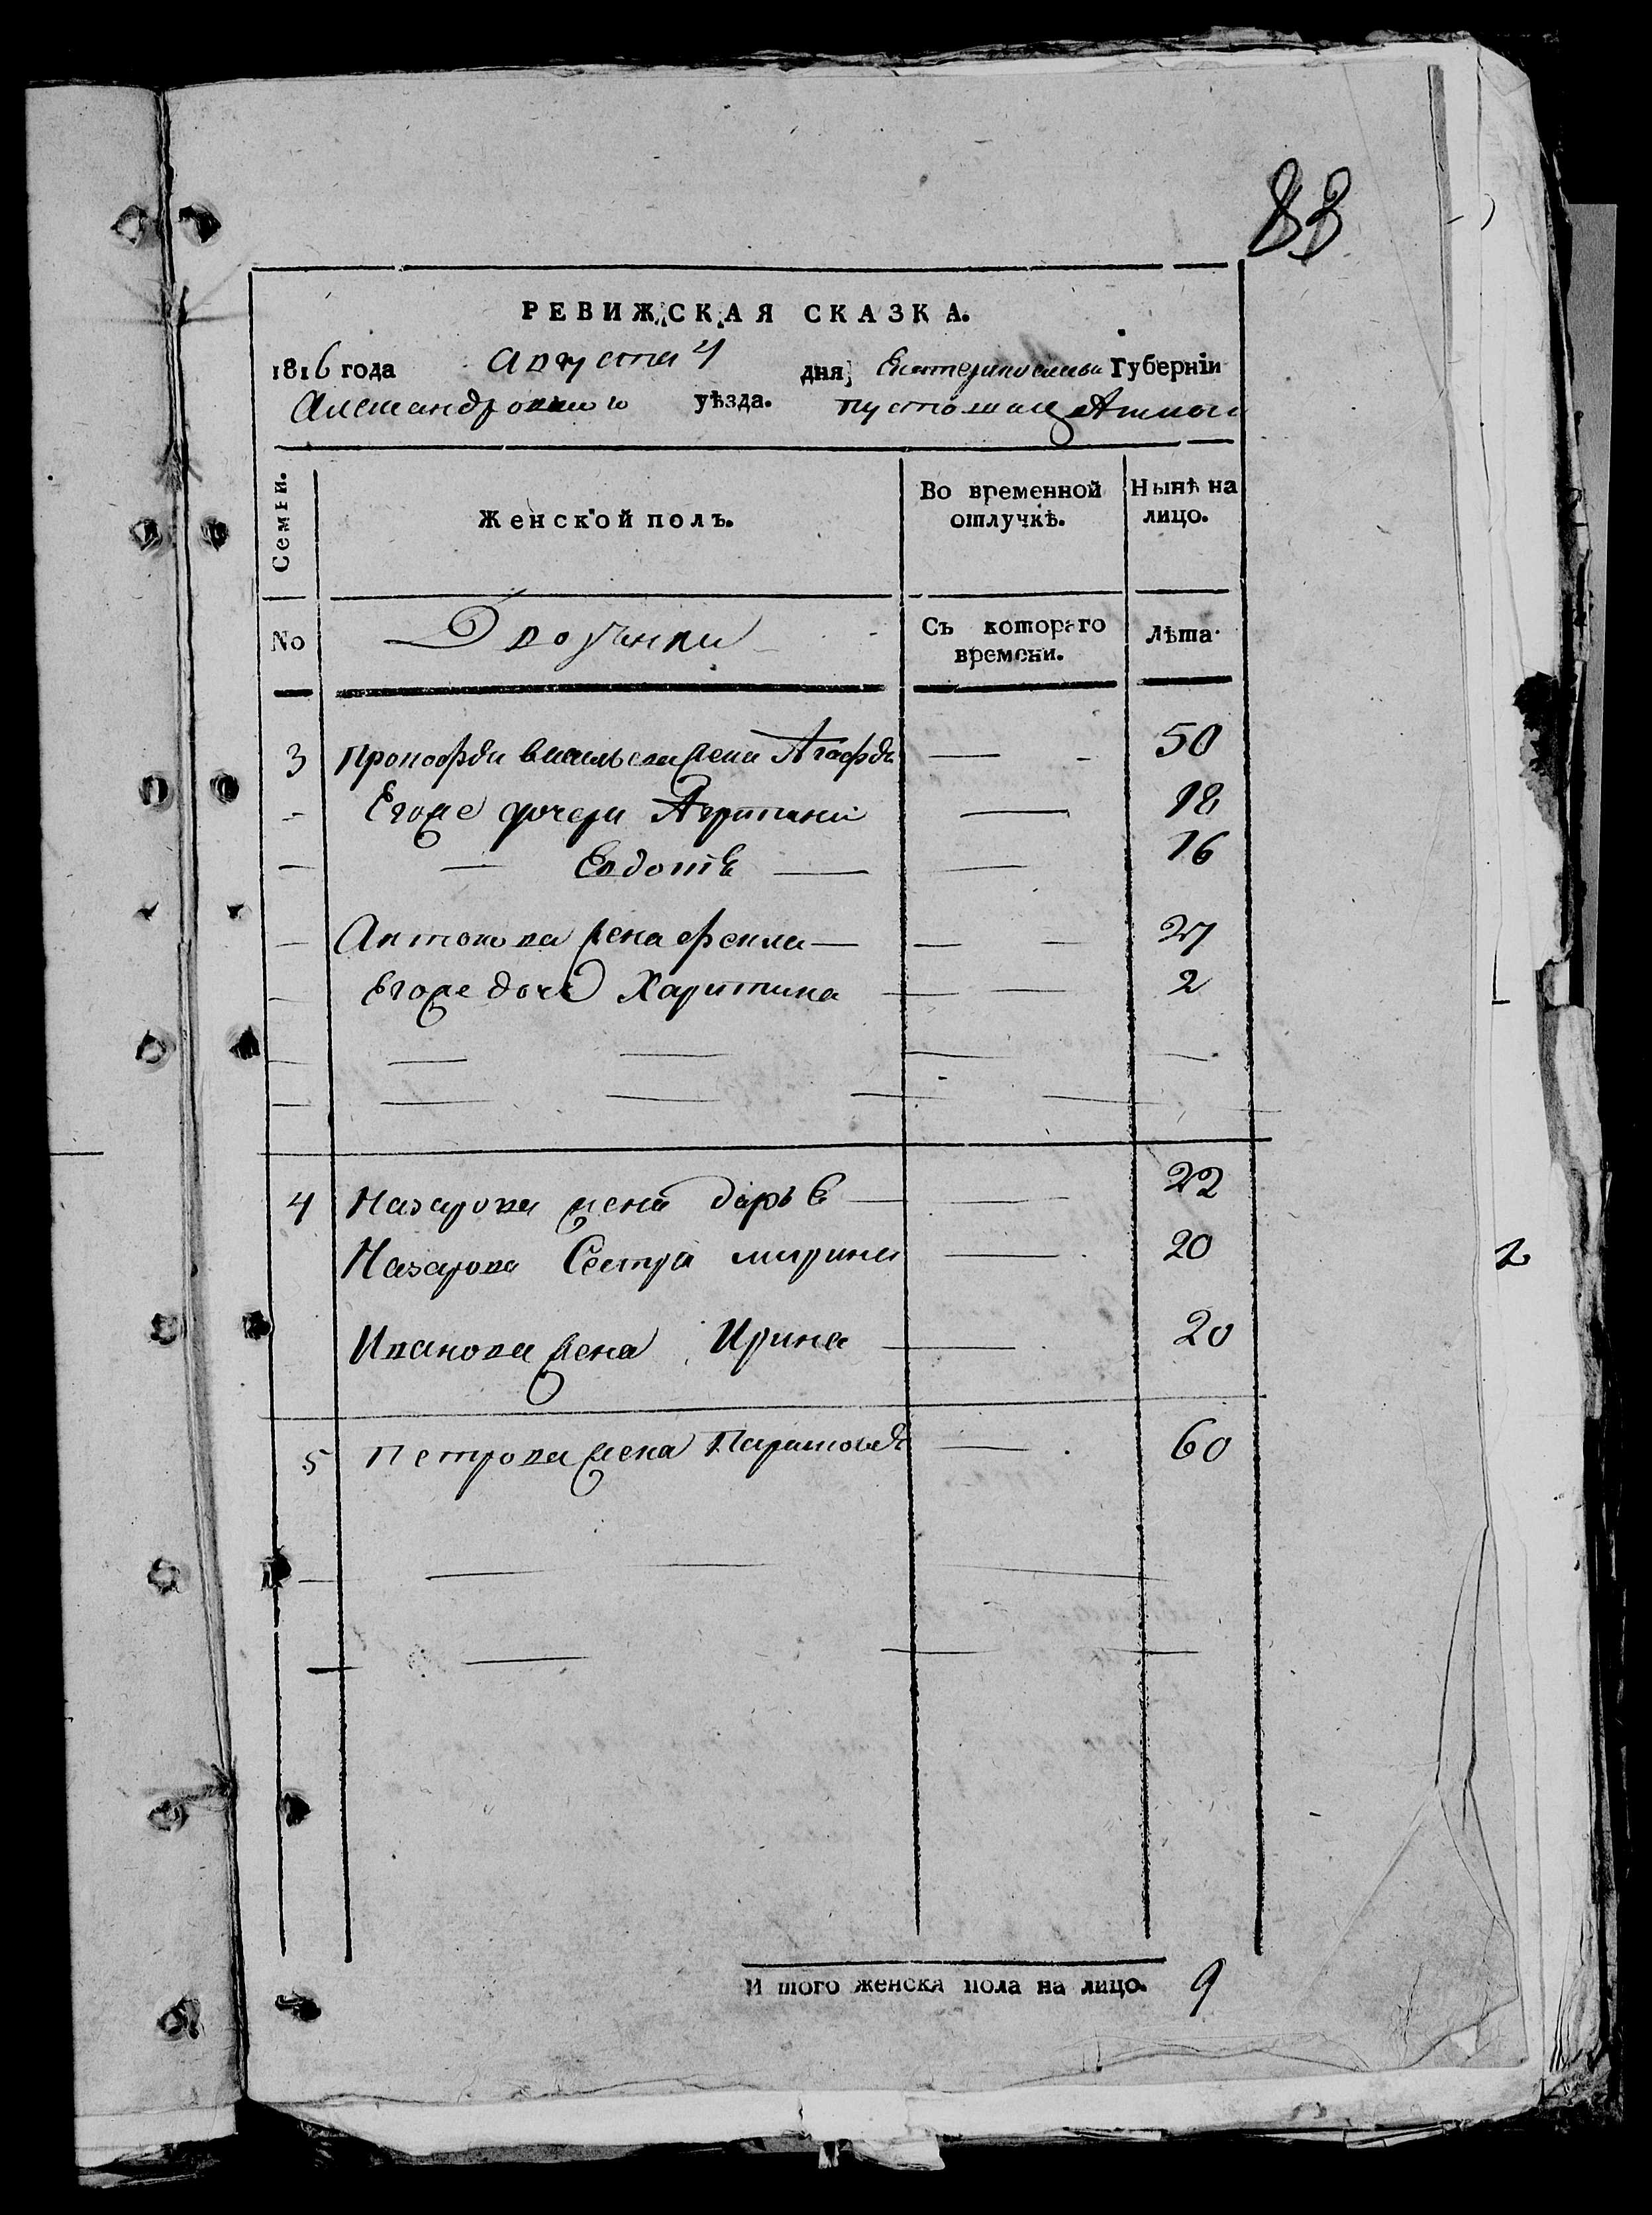 83
РЕВИЖСКАЯ СКАЗКА.
1816 года Августа 4 дня, Екатеринославск Губерніи
Александровского уѣзда.
Семьи. Женской полъ. Во временной отлучкѣ. Нынѣ на лицо.
No Дворянки Съ котораго времени. Лѣта.
3 Прокофья Васильева жена Агафья — 50
- Егоже дочери Агрипина — 18
— — Евдотья — — 16
— Антонова жена Фекла — — — 27
— Егоже дочь Харитина — — 2
4 Назарова жена Дарья — — 22
Назарова Сестра Марина — 20
Иванова жена Ирина — 20
5 Петрова жена Парасковья — 60
И того женска пола на лицо. 9
2